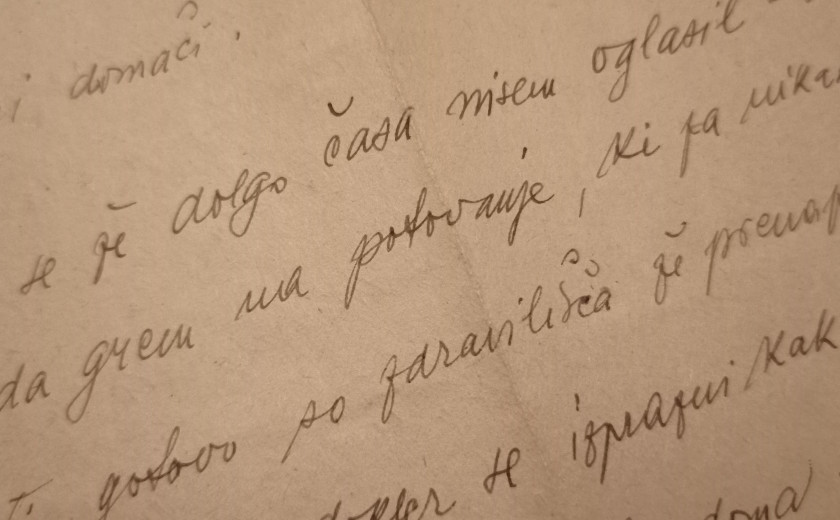 i domači.
se že dolgo časa nisem oglasil
da grem na potovanje, ki pa nika
Ti gotovo so zdravilišča že prenap
dokler se izprazni kak
doma